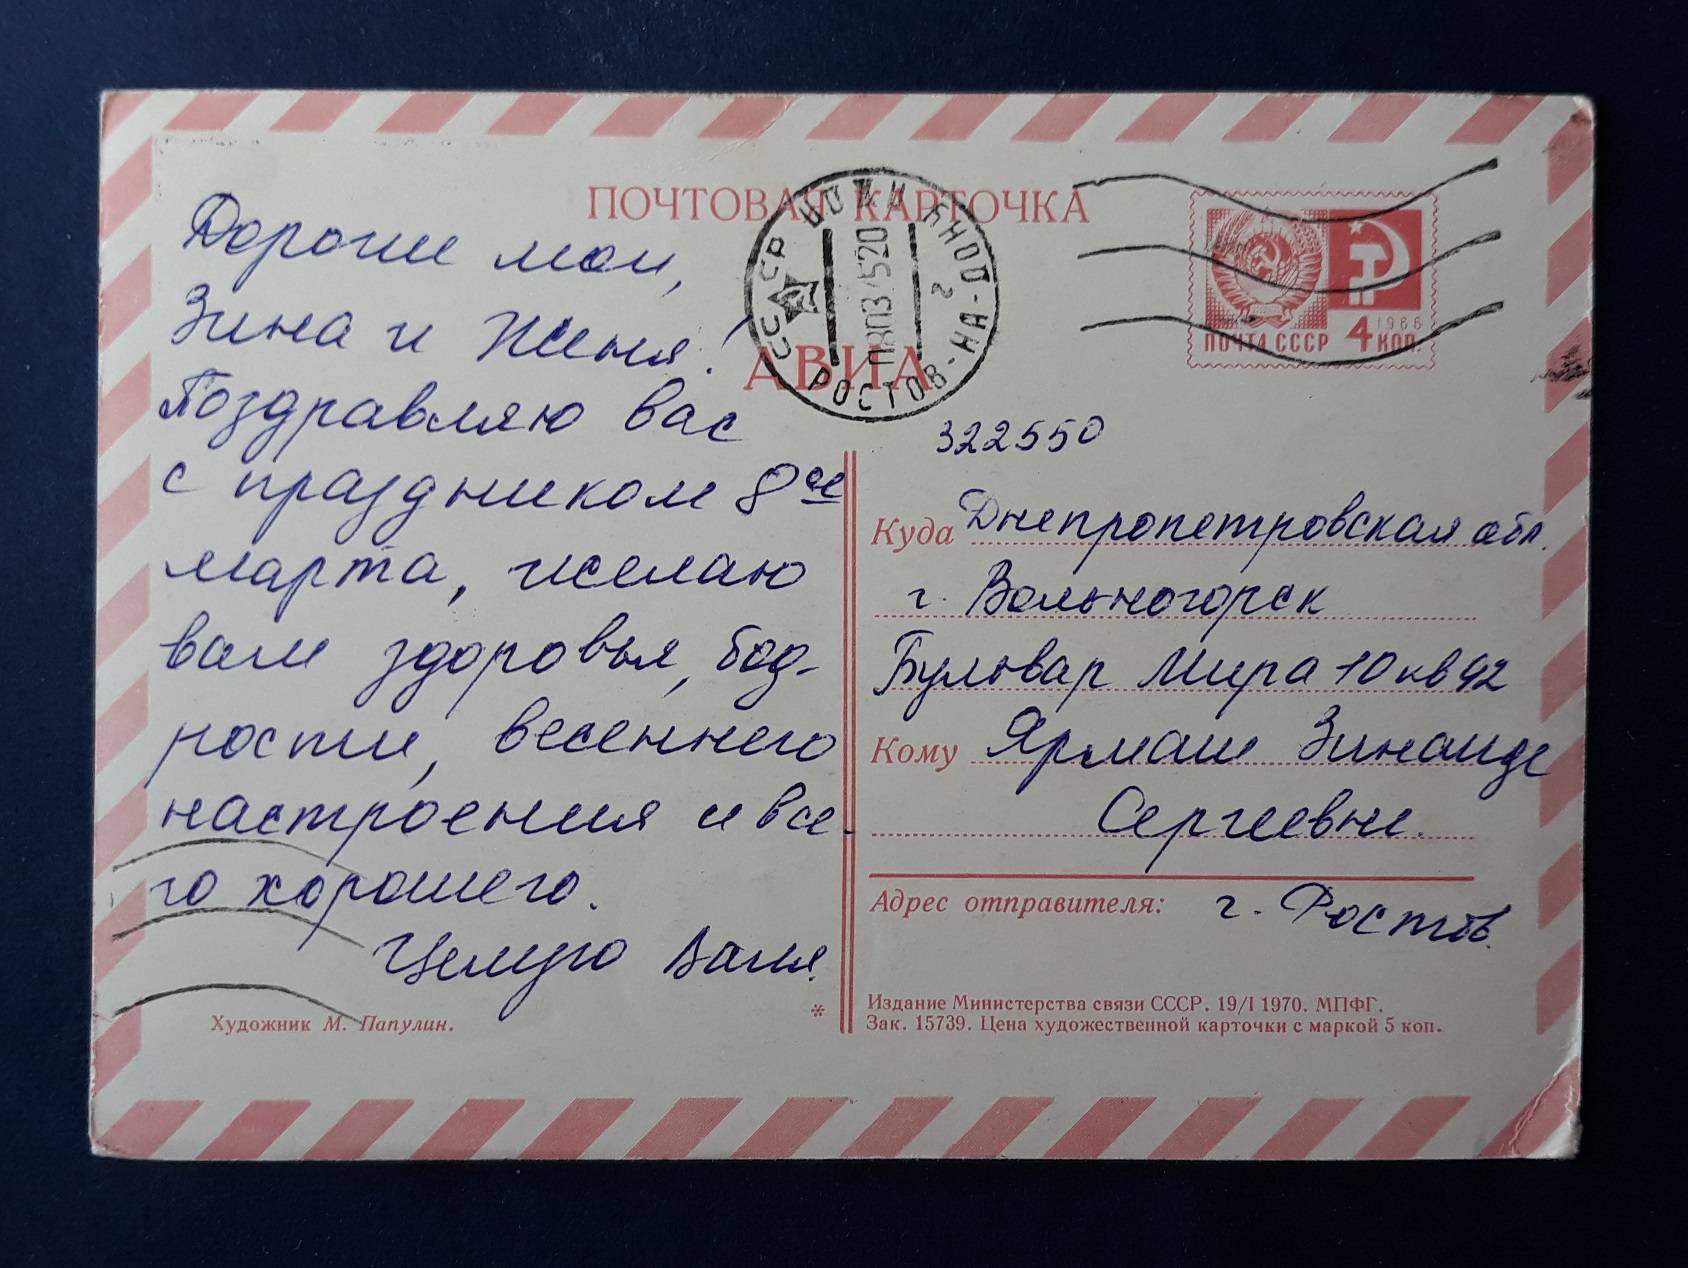 ПОЧТОВАЯ КАРТОЧКА
АВИА
СССР
РОСТОВ-НА-ДОНУ
1966
ПОЧТА СССР 4 КОП.
Дорогие мои,
Зина и Женя!
Поздравляю вас
с праздником 8ое
марта, желаю
вам здоровья, бод-
рости, весеннего
настроения и все-
го хорошего.
Целую Валя.
Художник М. Папулин.
322550
Куда Днепропетровская обл.
г. Вольногорск
Бульвар Мира 10 кв 92
Кому Ярмаш Зинаиде
Сергеевне.
Адрес отправителя: г. Ростов.
Издание Министерства связи СССР. 19/I 1970. МПФГ.
Зак. 15739. Цена художественной карточки с маркой 5 коп.